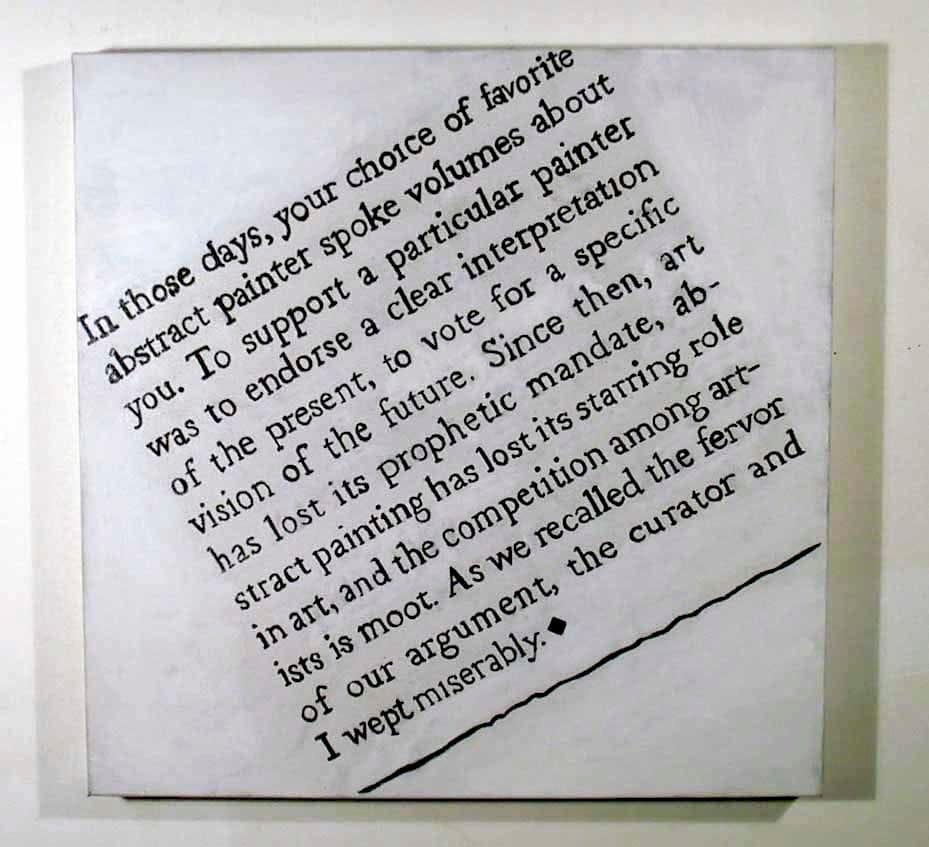 In those days, your choice of favorite
abstract painter spoke volumes about
you. To support a particular painter
was to endorse a clear interpretation
of the present, to vote for a specific
vision of the future. Since then, art
has lost its prophetic mandate, ab-
stract painting has lost its starring role
in art, and the competition among art-
ists is moot. As we recalled the fervor
of our argument, the curator and
I wept miserably. ◆